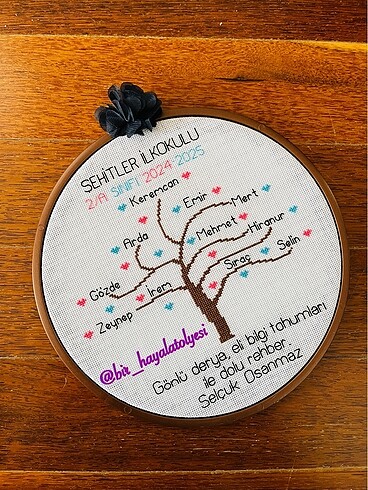 ŞEHİTLER İLKOKULU
2/A SINIFI 2024-2025
Keremcan
Emir
Mert
Arda
Mehmet
Hiranur
Gözde
İrem
Siraç
Selin
Zeynep
@bir_hayalatolyesi
Gönlü derya, eli bilgi tohumları
ile dolu rehber.
Selçuk Osanmaz